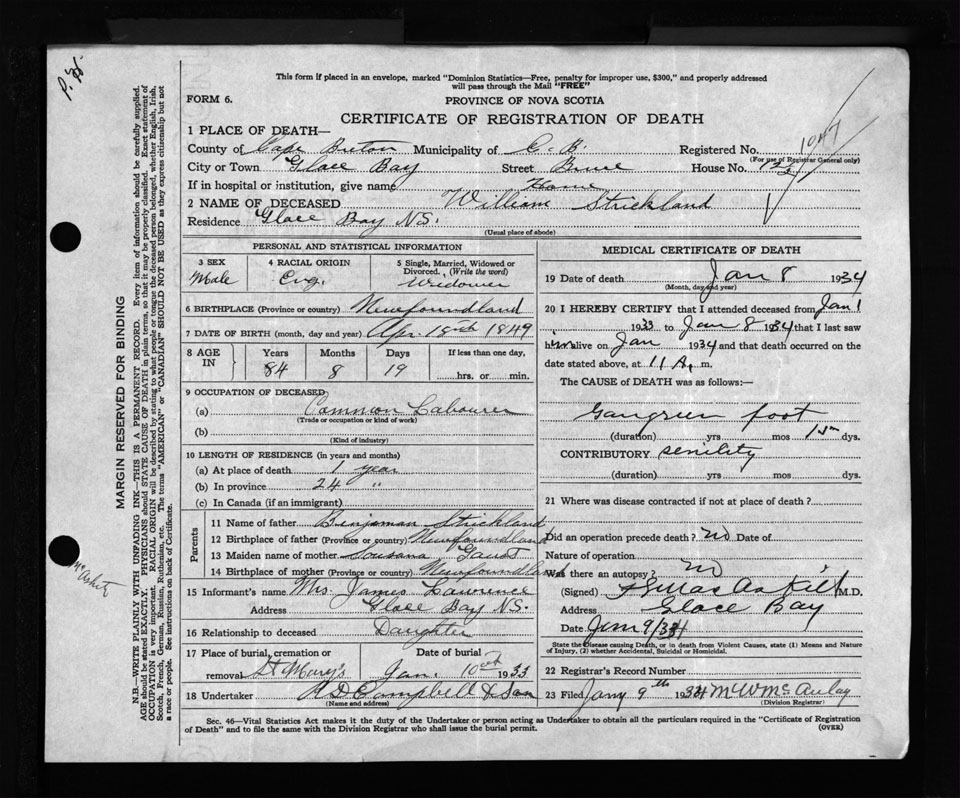 P. H.
This form if placed in an envelope, marked "Dominion Statistics—Free, penalty for improper use, $300," and properly addressed
will pass through the Mail "FREE"
FORM 6.
PROVINCE OF NOVA SCOTIA
CERTIFICATE OF REGISTRATION OF DEATH
1 PLACE OF DEATH—
County of Cape Breton Municipality of C. B. Registered No. 1047
(For use of Registrar General only)
City or Town Glace Bay Street Bruce House No.
If in hospital or institution, give name Home
2 NAME OF DECEASED William Strickland
Residence Glace Bay N.S.
(Usual place of abode)
PERSONAL AND STATISTICAL INFORMATION
3 SEX 4 RACIAL ORIGIN 5 Single, Married, Widowed or
Divorced. (Write the word)
Male Eng. Widower
6 BIRTHPLACE (Province or country) Newfoundland
7 DATE OF BIRTH (month, day and year) Apr. 18th 1849
8 AGE IN Years Months Days If less than one day,
84 8 19 hrs. or min.
9 OCCUPATION OF DECEASED
(a) Common Labourer
(Trade or occupation or kind of work)
(b)
(Kind of industry)
10 LENGTH OF RESIDENCE (in years and months)
(a) At place of death 1 year
(b) In province 24 "
(c) In Canada (if an immigrant)
Parents
11 Name of father Binjaman Strickland
12 Birthplace of father (Province or country) Newfoundland
13 Maiden name of mother Sousana
14 Birthplace of mother (Province or country) Newfoundland
15 Informant's name Mrs. James Lawrence
Address Glace Bay N.S.
16 Relationship to deceased Daughter
17 Place of burial, cremation or Date of burial
removal St Mary's Jan. 10th 1933
18 Undertaker A D Campbell & Son
(Name and address)
MEDICAL CERTIFICATE OF DEATH
19 Date of death Jan 8 1934
(Month, day and year)
20 I HEREBY CERTIFY that I attended deceased from Jan 1
1933 to Jan 8 1934 that I last saw
him alive on Jan 1934 and that death occurred on the
date stated above, at 11 A. m.
The CAUSE OF DEATH was as follows:—
Gangreen foot
(duration) yrs mos dys.
CONTRIBUTORY senility
(duration) yrs mos dys.
21 Where was disease contracted if not at place of death?
Did an operation precede death? no Date of
Nature of operation
Was there an autopsy? no
(Signed) M.D.
Address Glace Bay
Date Jan 9/34
State the Disease causing Death, or in death from Violent Causes, state (1) Means and
Nature of Injury, (2) whether Accidental, Suicidal or Homicidal.
22 Registrar's Record Number
23 Filed Jany 9th 1934 McAulay
(Division Registrar)
Sec. 46—Vital Statistics Act makes it the duty of the Undertaker or person acting as Undertaker to obtain all the particulars required in the "Certificate of Registration
of Death" and to file the same with the Division Registrar who shall issue the burial permit. (OVER)
MARGIN RESERVED FOR BINDING
N.B.—WRITE PLAINLY WITH UNFADING INK—THIS IS A PERMANENT RECORD. Every item of information should be carefully supplied.
AGE should be stated EXACTLY. PHYSICIANS should STATE CAUSE OF DEATH in plain terms, so that it may be properly classified. Exact statement of
OCCUPATION is very important. RACIAL ORIGIN will be described by stating to what people or tongue the deceased person belonged, whether English, Irish,
Scotch, French, German, Russian, Ruthenian, etc. The terms "AMERICAN" or "CANADIAN" SHOULD NOT BE USED as they express citizenship but not
a race or people. See instructions on back of Certificate.